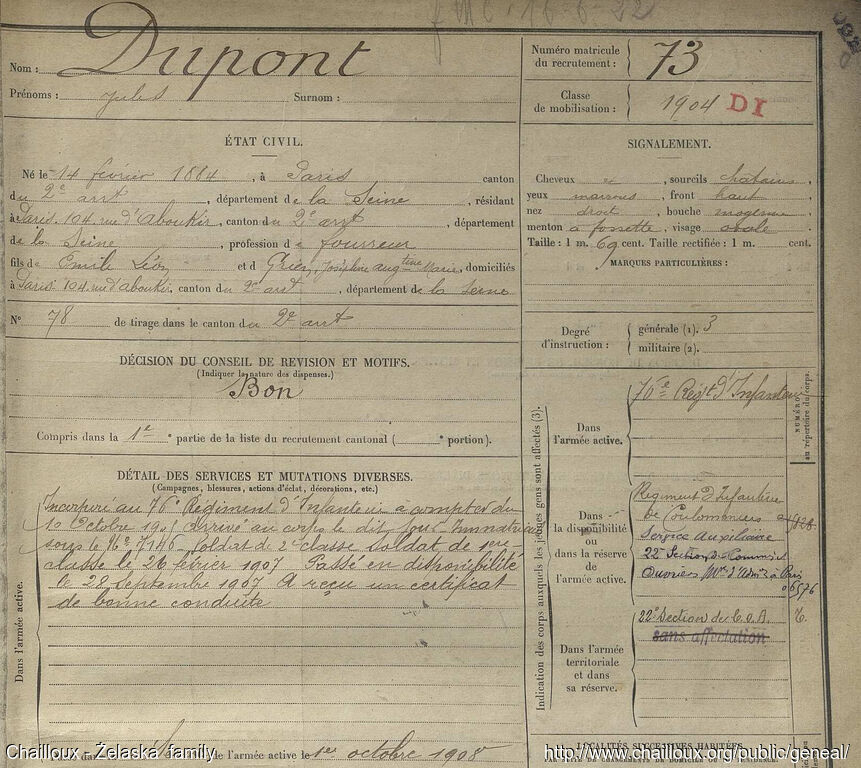 Dupont
Nom :
Prénoms : Jules Surnom :
Numéro matricule du recrutement : 73
Classe de mobilisation : 1904 DI
ÉTAT CIVIL.
Né le 14 février 1884, à Paris canton
du 2e arrt, département de la Seine, résidant
à Paris. 104 rue d'Aboukir, canton du 2e arrt, département
de la Seine, profession de fourreur
fils de Emile Léon et d Josephine Augtine Marie, domiciliés
à Paris 104 rue d'aboukir, canton du 2e arrt, département de la Seine
No 78 de tirage dans le canton du 2e arrt
SIGNALEMENT.
Cheveux , sourcils chatains,
yeux marrons, front haut,
nez droit, bouche moyenne,
menton à fossette, visage ovale
Taille : 1 m. 69 cent. Taille rectifiée : 1 m. cent.
MARQUES PARTICULIÈRES :
Degré d'instruction : générale (1). 3
militaire (2).
DÉCISION DU CONSEIL DE REVISION ET MOTIFS.
(Indiquer la nature des dispenses.)
Bon
Compris dans la 1re partie de la liste du recrutement cantonal ( e portion).
DÉTAIL DES SERVICES ET MUTATIONS DIVERSES.
(Campagnes, blessures, actions d'éclat, décorations, etc.)
Dans l'armée active.
Incorporé au 76e Régiment d'Infanterie à compter du
1o Octobre 1905 arrivé au corps le dit jour Immatriculé
sous le No 7146 Soldat de 2e classe Soldat de 1ere
classe le 26 février 1907 Passé en disponibilité
le 28 septembre 1907 A reçu un certificat
de bonne conduite
de l'armée active le 1er octobre 1908
Indication des corps auxquels les jeunes gens sont affectés (3).
NUMÉRO
au répertoire du corps.
Dans l'armée active.
76e Régt d'Infanterie
Dans la disponibilité ou dans la réserve de l'armée active.
Régiment d'Infanterie
de Coulommiers
Service Auxiliaire
22e Section de Commis et
Ouvriers Mres d'Admon à Paris
6576
Dans l'armée territoriale et dans sa réserve.
22e Section de C.O.A.
sans affectation
LOCALITÉS SUCCESSIVES HABITÉES
PAR SUITE DE CHANGEMENTS DE DOMICILE OU DE RÉSIDENCE.
Chailloux - Żelaska family
http://www.chailloux.org/public/geneal/